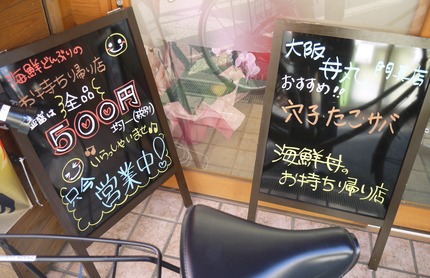 海鮮どんぶりの
お持ち帰り店
店は
全品
500円
均一
いらっしゃいませ
只今
営業中!
大阪 丼丸
おすすめ!!
穴子・たこ・サバ
海鮮丼の
お持ち帰り店